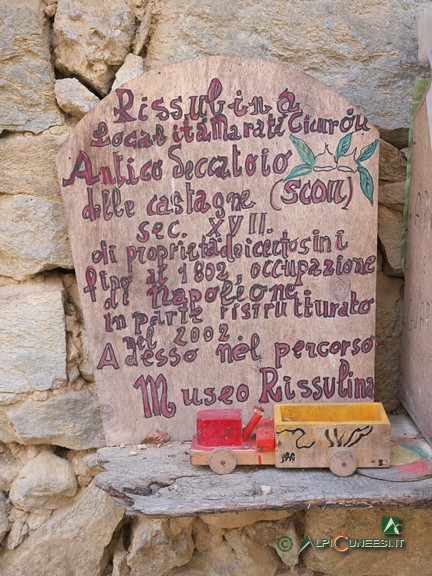 Rissulina
Località Marati Ciourou
Antico Seccatoio
delle castagne (scou)
sec. XVII.
di proprietà dei certosini
fino al 1802, occupazione
di Napoleone
in parte ristrutturato
nel 2002
Adesso nel percorso
Museo Rissulina
© ALPICUNEESI.IT